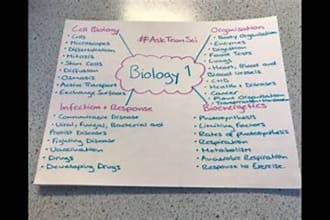 Cell Biology
• Cells
• Microscopes
• Differentiation
• Mitosis
• Stem Cells
• Diffusion
• Osmosis
• Active Transport
• Exchange Surfaces
#AskTeamSci
Biology 1
Organisation
• Body Organisation
• Enzymes
• Digestion
• Food Tests
• Lungs
• Heart, Blood and
Blood Vessels
• CHD
• Health + Diseases
• Cancer
• Plant Organisation
• Transpiration + Translocation
Infection + Response
• Communicable Disease
• Viral, Fungal, Bacterial and
Protist Diseases
• Fighting Disease
• Vaccination
• Drugs
• Developing Drugs
Bioenergetics
• Photosynthesis
• Limiting Factors
• Rates of Photosynthesis
• Respiration
• Metabolism
• Anaerobic Respiration
• Response to Exercise